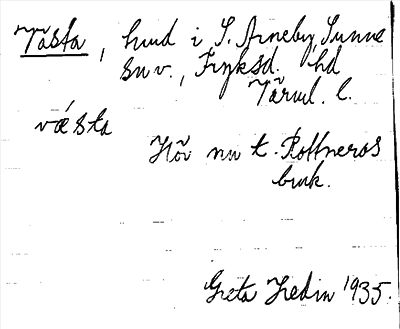 Västa, hmd i S. Arneby, Sunne
sn v., Fryksd. hd
Värml. l.
væsta
Hör nu t. Rottneros
bruk.
Greta Hedin 1935.